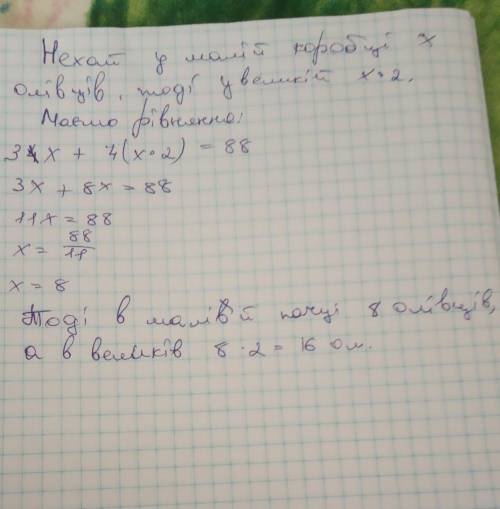 Нехай у малій коробці x
олівців, тоді у великій x·2.
Маємо рівняння:
3x + 4(x·2) = 88
3x + 8x = 88
11x = 88
x = 88/11
x = 8
Тоді в малій пачці 8 олівців,
а в великів 8·2 = 16 ол.